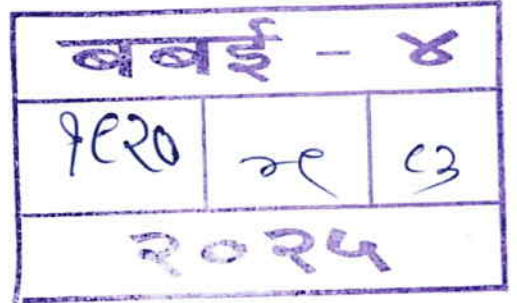 बबई - ४
१९२० २९ ९३
२०२५